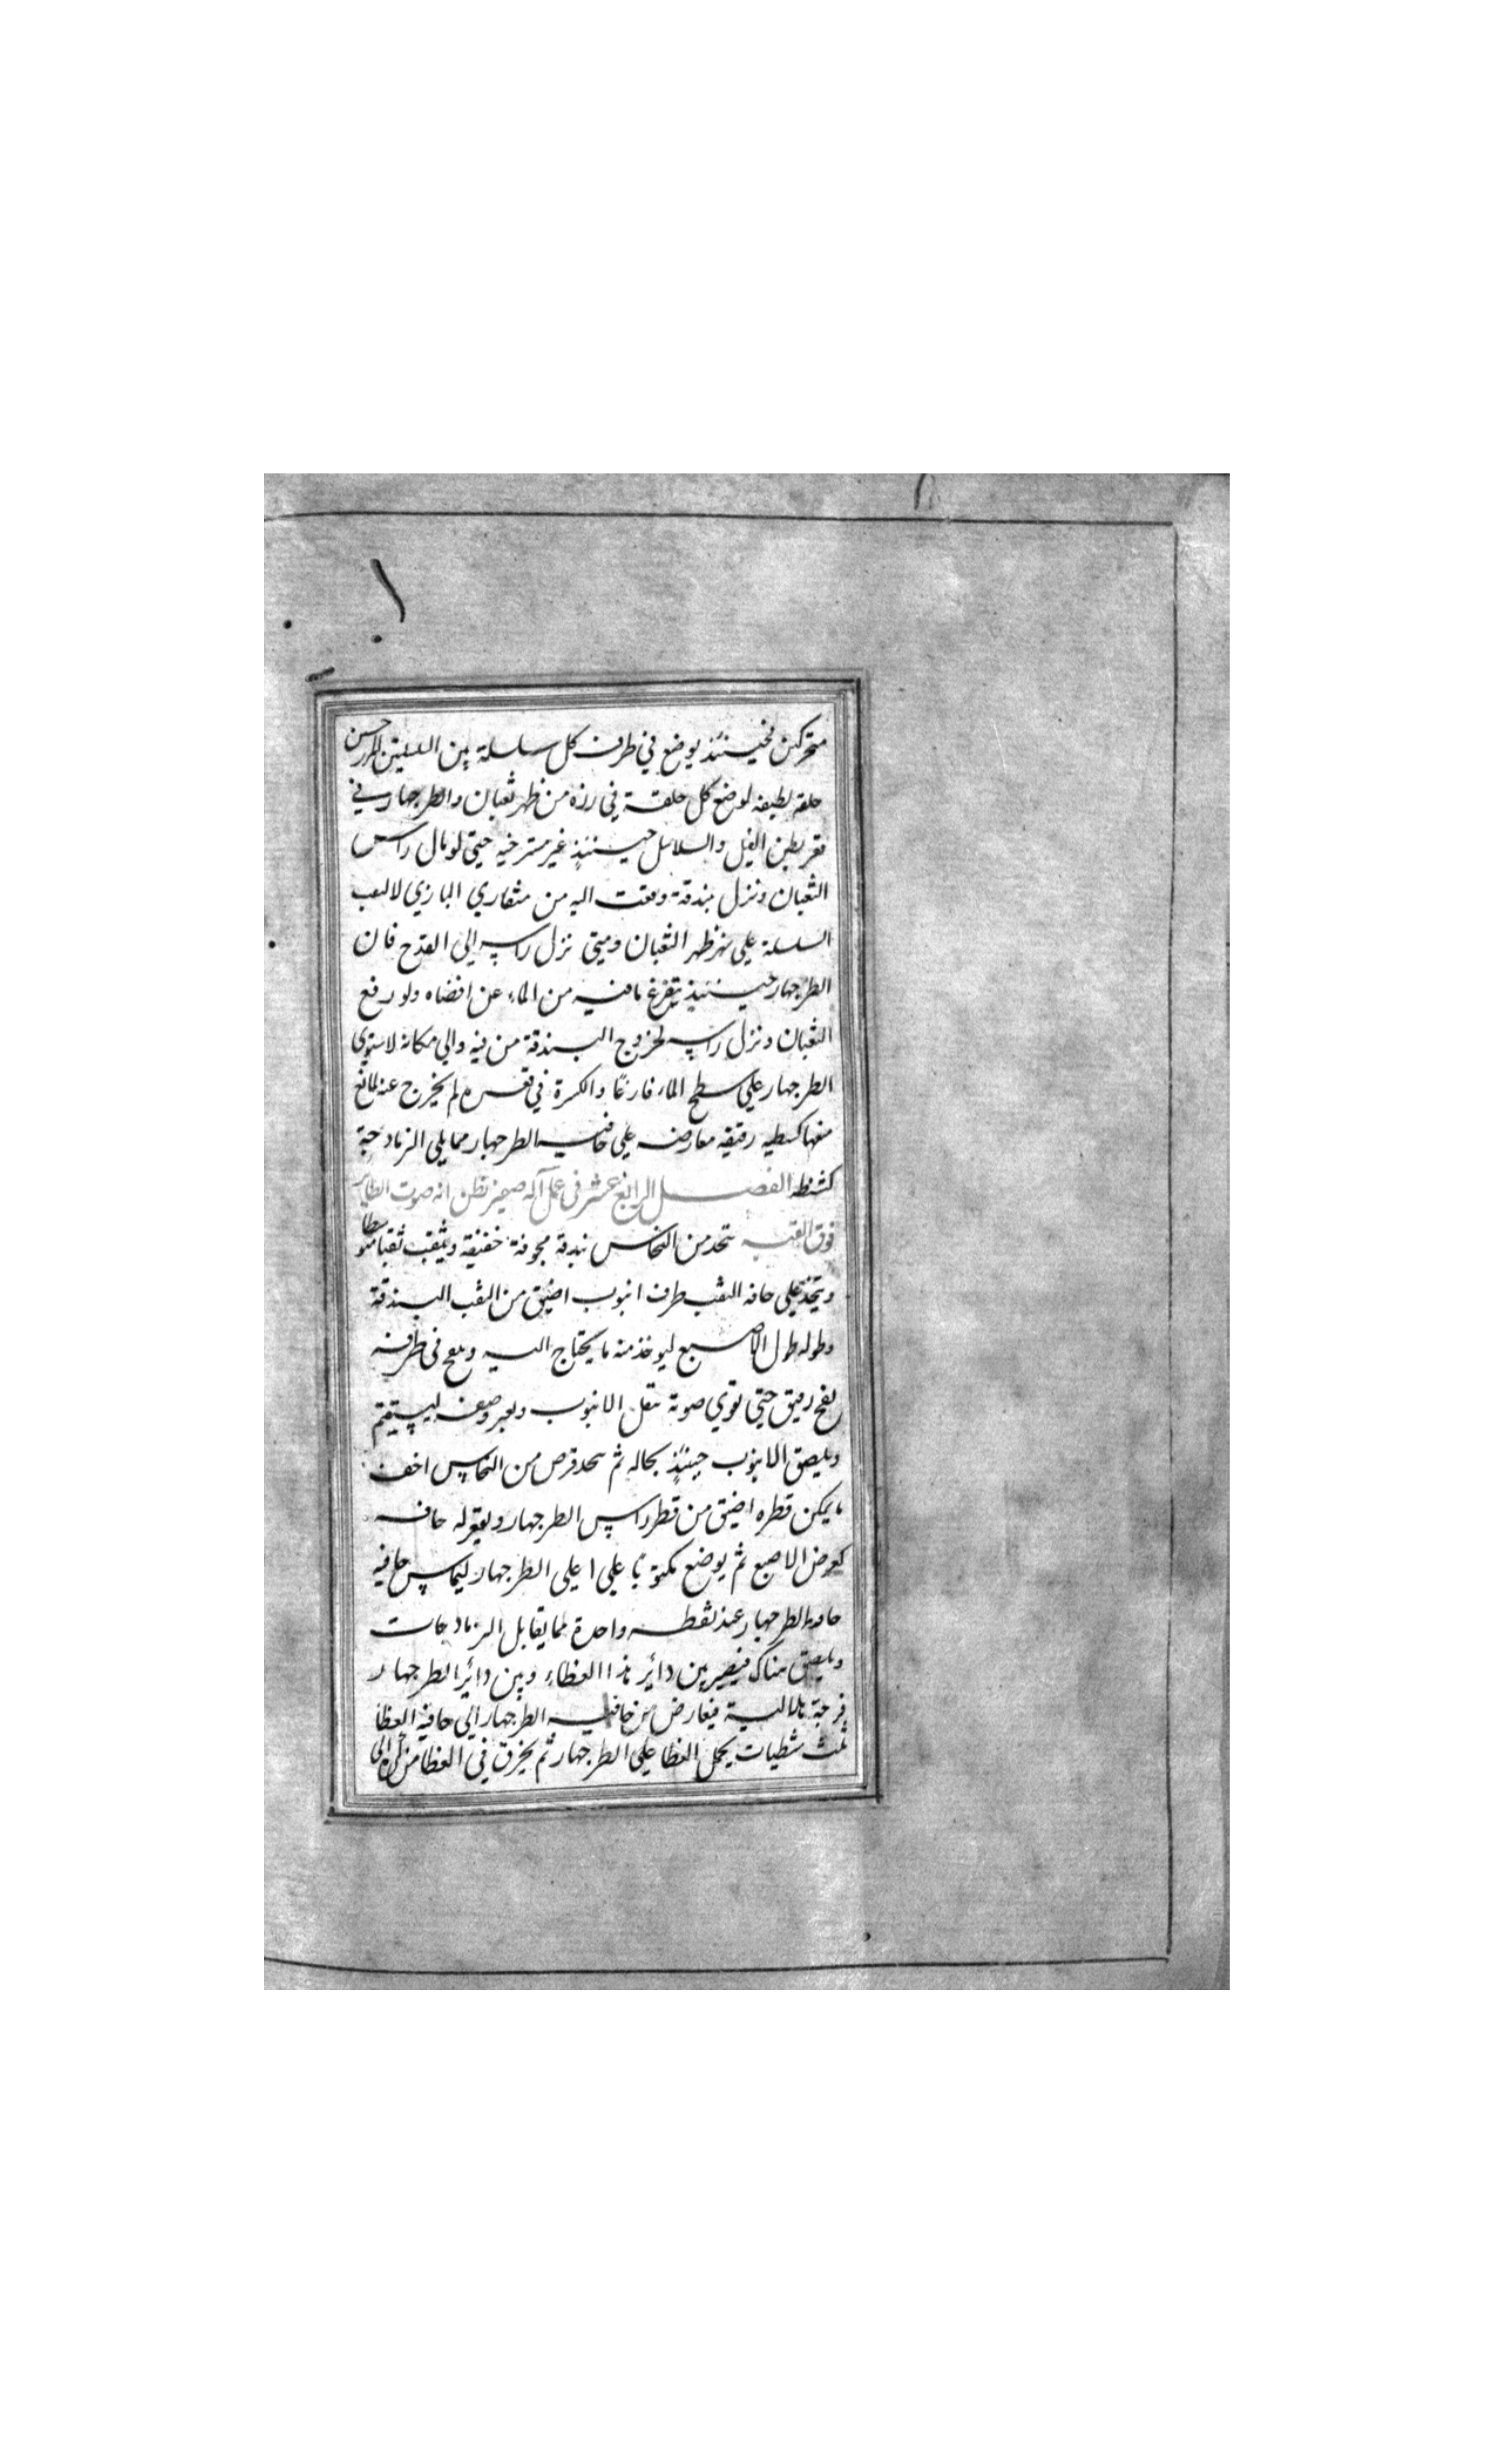 متحركين فحينئذ يوضع في طرف كل سلسلة من السلسلتين
حلقه لطيفه لوضع كل حلقة في رزه من ظهر ثعبان والطرجهار في
قعر بطن الفيل والسلاسل حينئذ غير مسترخيه حتي لو مال راس
الثعبان ونزل بندقة وقعت اليه من منقاري البازي لا
السلسلة علي ظهر الثعبان ومتي نزل راسه الي القدح فان
الطرجهار حينئذ يتفرغ ما فيه من الماء عن اقصاه ولو رفع
الثعبان ونزل راسه لخروج البندقة من فيه والي مكانه لاستوي
الطرجهار علي سطح الماء فارغا والكسرة في قعره لم يخرج عنه لمانع
منعها كشطيه رقيقه معارضه علي حافيه الطرجهار مما يلي الزنادجة
كشظه الفصل الرابع عشر في عمل آله صفير تظن انه صوت الطاير
فوق القبه يتخذ من النحاس بندقة مجوفة خفيفة ويثقب ثقبا متوسطا
ويتخذ علي حافه الثقب طرف انبوب اضيق من الثقب البندقة
وطوله طول الاصبع ليوخذ منه ما يحتاج اليه وينفخ في طرفه
نفخ رقيق حتي يقوي صوته بنقل الانبوب وبغير وضعه ليستقيم
ويلصق الانبوب حينئذ بحاله ثم يتخذ قرص من النحاس اخف
ما يمكن قطره اضيق من قطر راس الطرجهار ويعقر له حافه
كعرض الاصبع ثم يوضع مكبوبا علي اعلي الطرجهار ليماس حافيه
حافه الطرجهار عند نقطه واحدة مما يقابل الزنادجات
ويلصق هناك فيصير بين دائر هذا الغطاء وبين دائر الطرجهار
فرجة هلالية فيعارض من حافيه الطرجهار الي حافية الغطا
ثلث شظيات يحمل الغطا علي الطرجهار ثم يخرق في الغطا من